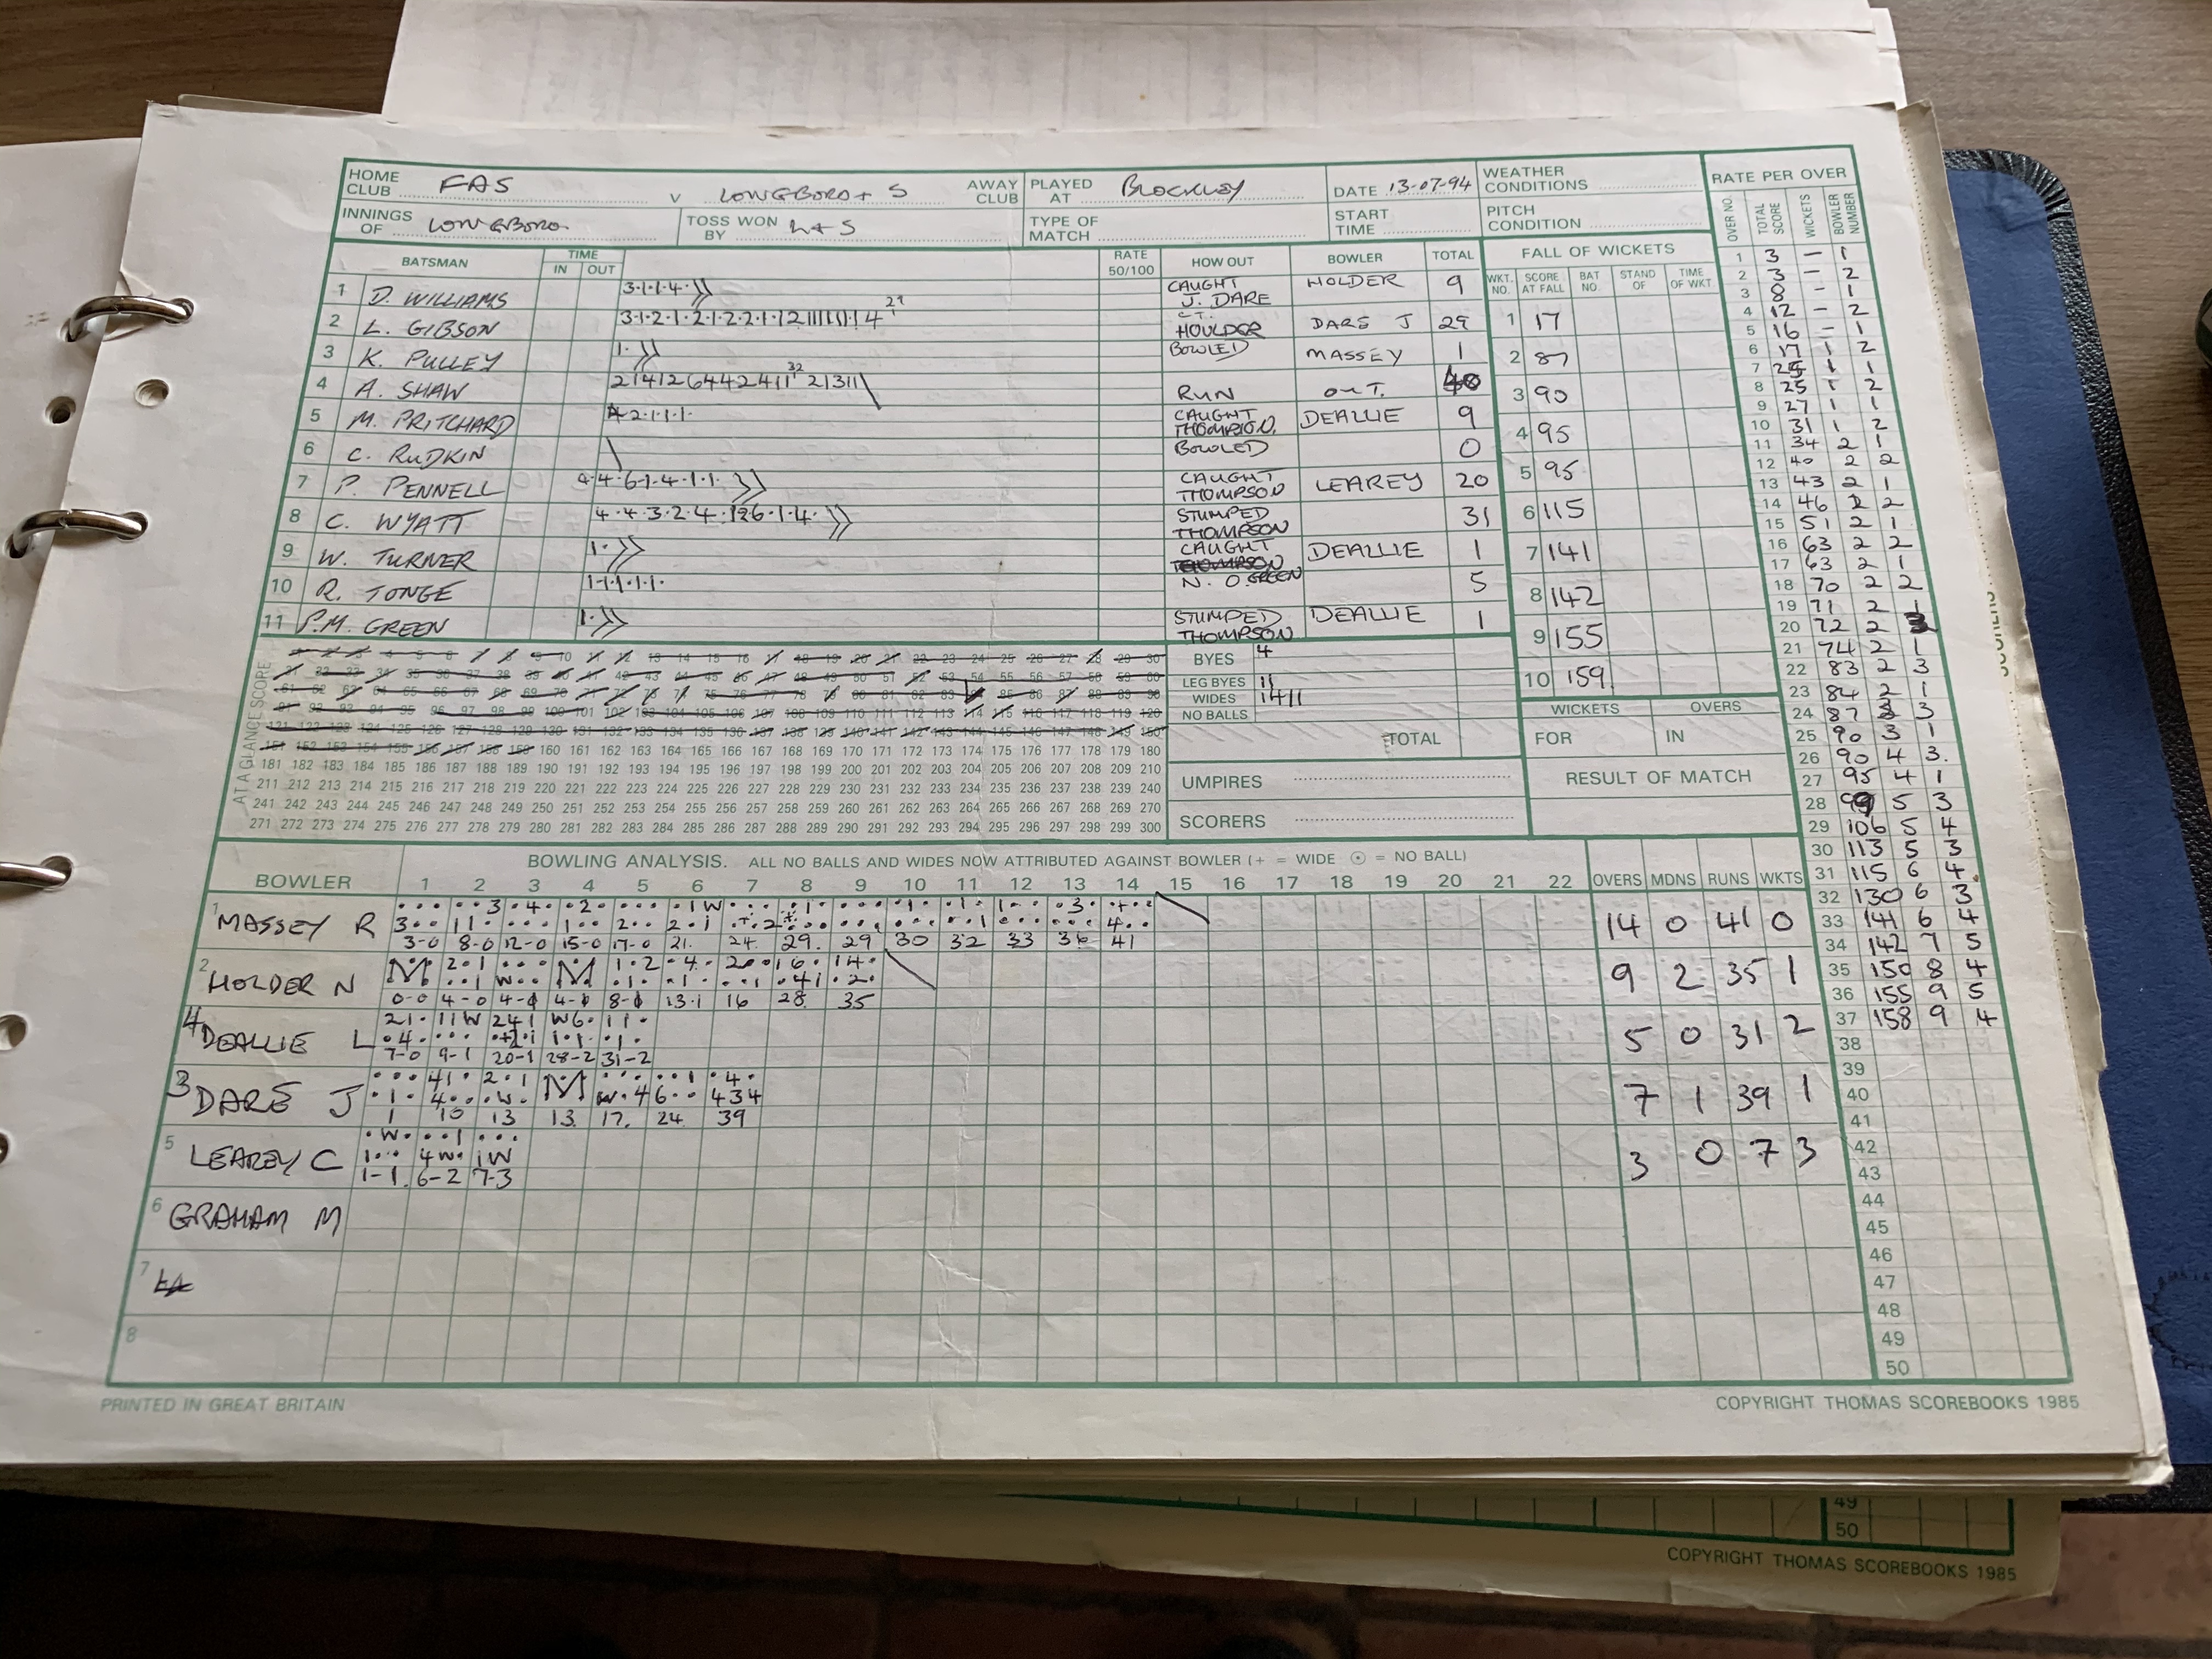 HOME CLUB FAS v LONGBORO + S AWAY CLUB
PLAYED AT BLOCKLEY
DATE 13-07-94
WEATHER CONDITIONS
INNINGS OF LONGBORO.
TOSS WON BY L+S
TYPE OF MATCH
START TIME
PITCH CONDITION
BATSMAN TIME IN OUT RATE 50/100 HOW OUT BOWLER TOTAL
1 D. WILLIAMS 3·1·1·4· CAUGHT J. DARE HOLDER 9
2 L. GIBSON CT. HOULDER DARE J 29
3 K. PULLEY 1· BOWLED MASSEY 1
4 A. SHAW 21412644241132 21311 RUN OUT. 40
5 M. PRITCHARD 4 2·1·1·1· CAUGHT THOMPSON. DEALLIE 9
6 C. RUDKIN BOWLED 0
7 P. PENNELL 4·6·1·4·1·1· CAUGHT THOMPSON LEAREY 20
8 C. WYATT 4·4·3·2·4·126·1·4· STUMPED THOMPSON 31
9 W. TURNER 1· CAUGHT THOMPSON GREEN DEALLIE 1
10 R. TONGE 1·1·1·1·1· N.O. 5
11 P.M. GREEN 1· STUMPED THOMPSON DEALLIE 1
FALL OF WICKETS
WKT. NO. SCORE AT FALL BAT NO. STAND OF TIME OF WKT.
1 17
2 87
3 90
4 95
5 95
6 115
7 141
8 142
9 155
10 159
AT A GLANCE SCORE
1 2 3 4 5 6 7 8 9 10 11 12 13 14 15 16 17 18 19 20 21 22 23 24 25 26 27 28 29 30
31 32 33 34 35 36 37 38 39 40 41 42 43 44 45 46 47 48 49 50 51 52 53 54 55 56 57 58 59 60
61 62 63 64 65 66 67 68 69 70 71 72 73 74 75 76 77 78 79 80 81 82 83 84 85 86 87 88 89 90
91 92 93 94 95 96 97 98 99 100 101 102 103 104 105 106 107 108 109 110 111 112 113 114 115 116 117 118 119 120
121 122 123 124 125 126 127 128 129 130 131 132 133 134 135 136 137 138 139 140 141 142 143 144 145 146 147 148 149 150
151 152 153 154 155 156 157 158 159 160 161 162 163 164 165 166 167 168 169 170 171 172 173 174 175 176 177 178 179 180
181 182 183 184 185 186 187 188 189 190 191 192 193 194 195 196 197 198 199 200 201 202 203 204 205 206 207 208 209 210
211 212 213 214 215 216 217 218 219 220 221 222 223 224 225 226 227 228 229 230 231 232 233 234 235 236 237 238 239 240
241 242 243 244 245 246 247 248 249 250 251 252 253 254 255 256 257 258 259 260 261 262 263 264 265 266 267 268 269 270
271 272 273 274 275 276 277 278 279 280 281 282 283 284 285 286 287 288 289 290 291 292 293 294 295 296 297 298 299 300
BYES 4
LEG BYES 11
WIDES 1411
NO BALLS
TOTAL
UMPIRES
SCORERS
WICKETS OVERS
FOR IN
RESULT OF MATCH
BOWLING ANALYSIS. ALL NO BALLS AND WIDES NOW ATTRIBUTED AGAINST BOWLER (+ = WIDE ⊙ = NO BALL)
BOWLER 1 2 3 4 5 6 7 8 9 10 11 12 13 14 15 16 17 18 19 20 21 22 OVERS MDNS RUNS WKTS
1 MASSEY R 14 0 41 0
3-0 8-0 12-0 15-0 17-0 21. 24. 29. 29 30 32 33 36 41
2 HOLDER N 9 2 35 1
0-0 4-0 4-1 4-1 8-1 13·1 16 28. 35
4 DEALLIE L 5 0 31 2
7-0 9-1 20-1 28-2 31-2
3 DARE J 7 1 39 1
1 10 13 13. 17. 24. 39
5 LEAREY C 3 0 7 3
1-1. 6-2 7-3
6 GRAHAM M
7
8
RATE PER OVER
OVER NO. TOTAL SCORE WICKETS BOWLER NUMBER
1 3 – 1
2 3 – 2
3 8 – 1
4 12 – 2
5 16 – 1
6 17 1 2
7 25 1 1
8 25 1 2
9 27 1 1
10 31 1 2
11 34 2 1
12 40 2 2
13 43 2 1
14 46 2 2
15 51 2 1
16 63 2 2
17 63 2 1
18 70 2 2
19 71 2 1
20 72 2 3
21 74 2 1
22 83 2 3
23 84 2 1
24 87 3 3
25 90 3 1
26 90 4 3.
27 95 4 1
28 99 5 3
29 106 5 4
30 113 5 3
31 115 6 4.
32 130 6 3
33 141 6 4
34 142 7 5
35 150 8 4
36 155 9 5
37 158 9 4
38
39
40
41
42
43
44
45
46
47
48
49
50
PRINTED IN GREAT BRITAIN
COPYRIGHT THOMAS SCOREBOOKS 1985
49
50
COPYRIGHT THOMAS SCOREBOOKS 1985